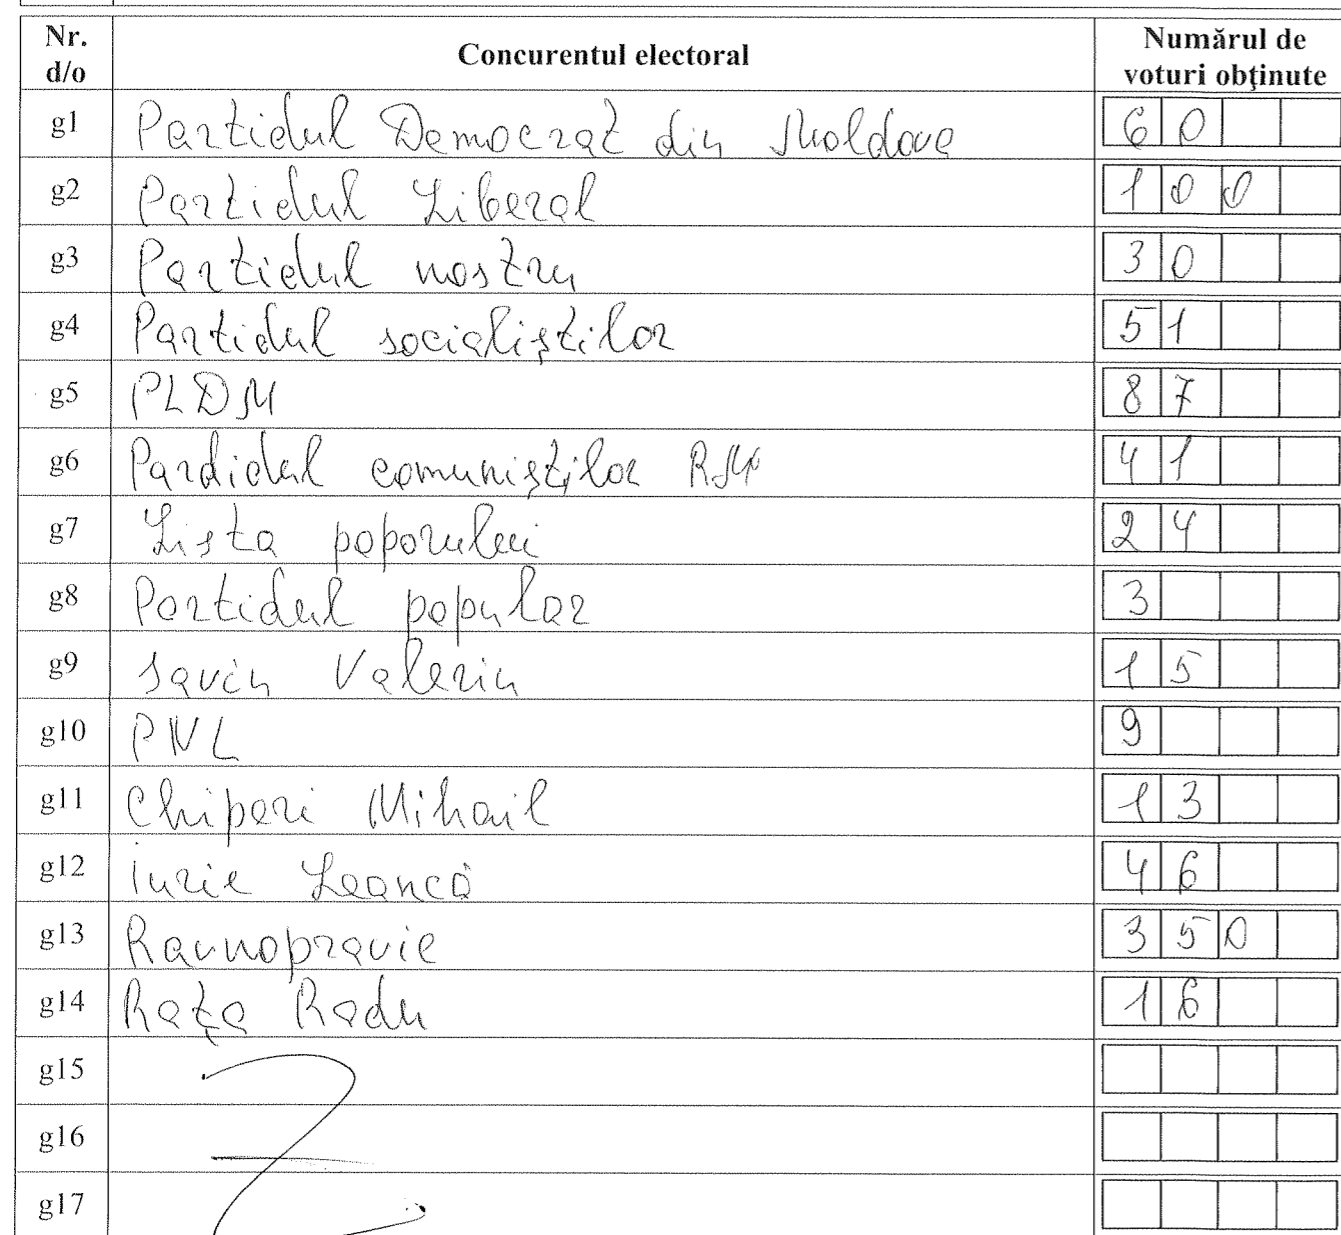 Nr. d/o Concurentul electoral Numărul de voturi obţinute
g1 Partidul Democrat din Moldova 60
g2 Partidul Liberal 100
g3 Partidul nostru 30
g4 Partidul socialiştilor 51
g5 PLDM 87
g6 Pardidul comuniştilor RM 41
g7 Lista poporului 24
g8 Partidul popular 3
g9 Savin Valeriu 15
g10 PNL 9
g11 Chiperi Mihail 13
g12 Iurie Leancă 46
g13 Ravnopravie 350
g14 Raţa Radu 16
g15
g16
g17